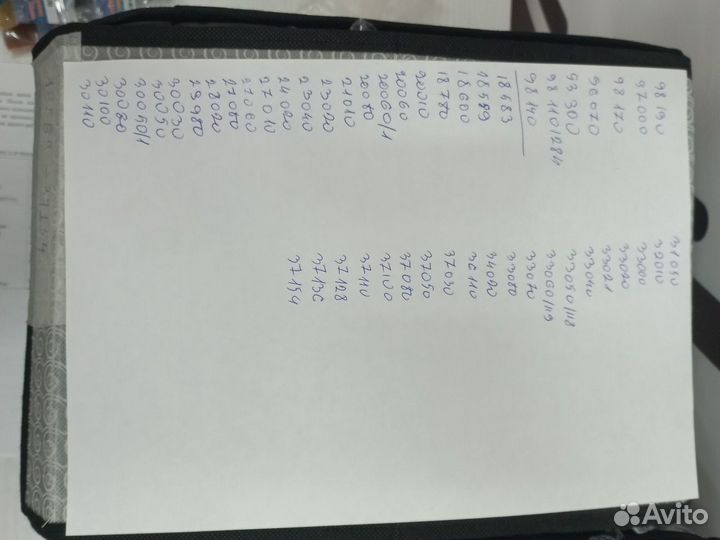 98190
97000
98170
96070
93300
98110/284
98140
18683
18689
18600
18780
20010
20060
20060/1
20080
21010
23020
23040
24020
27010
27060
27080
28020
29980
30030
30050
30060/1
30080
30100
30110
31050
32010
33000
33020
33021
33040
33050/118
33060/119
33070
33080
34020
36110
37030
37050
37080
37100
37110
37128
37136
37154
Avito